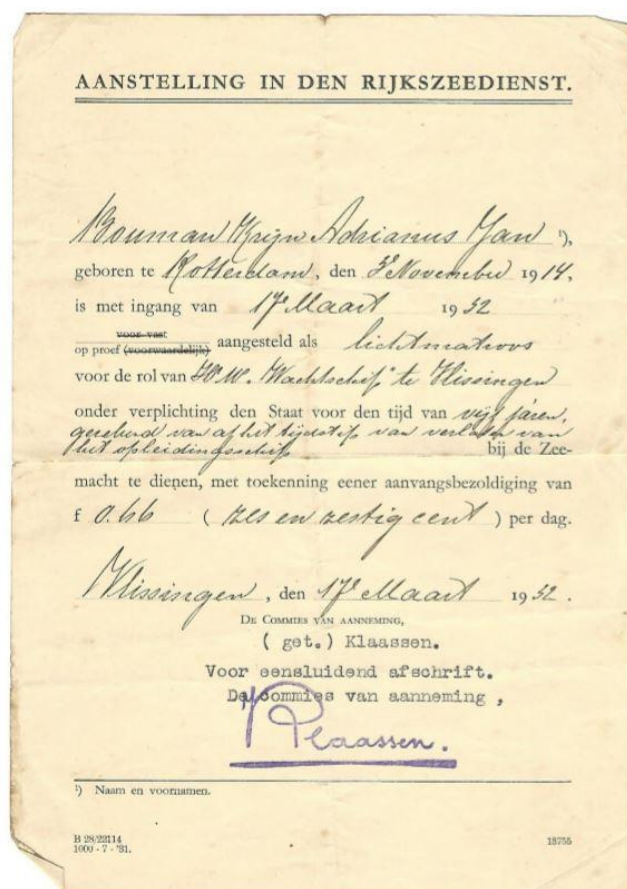 AANSTELLING IN DEN RIJKSZEEDIENST.
Bouman Krijn Adrianus Jan ¹),
geboren te Rotterdam, den 3e November 1914,
is met ingang van 17e Maart 1932
voor vast
op proef (voorwaardelijk) aangesteld als lichtmatroos
voor de rol van H.M. "Wachtschip" te Vlissingen
onder verplichting den Staat voor den tijd van vijf jaren,
gerekend van af het tijdstip van verlaten van
het opleidingsschip bij de Zee-
macht te dienen, met toekenning eener aanvangsbezoldiging van
f 0.66 ( zes en zestig cent ) per dag.
Vlissingen, den 17e Maart 1932.
DE COMMIES VAN AANNEMING,
( get.) Klaassen.
Voor eensluidend afschrift.
De commies van aanneming ,
Klaassen.
¹) Naam en voornamen.
B 28/22114
1000 - 7 - '31.
18755